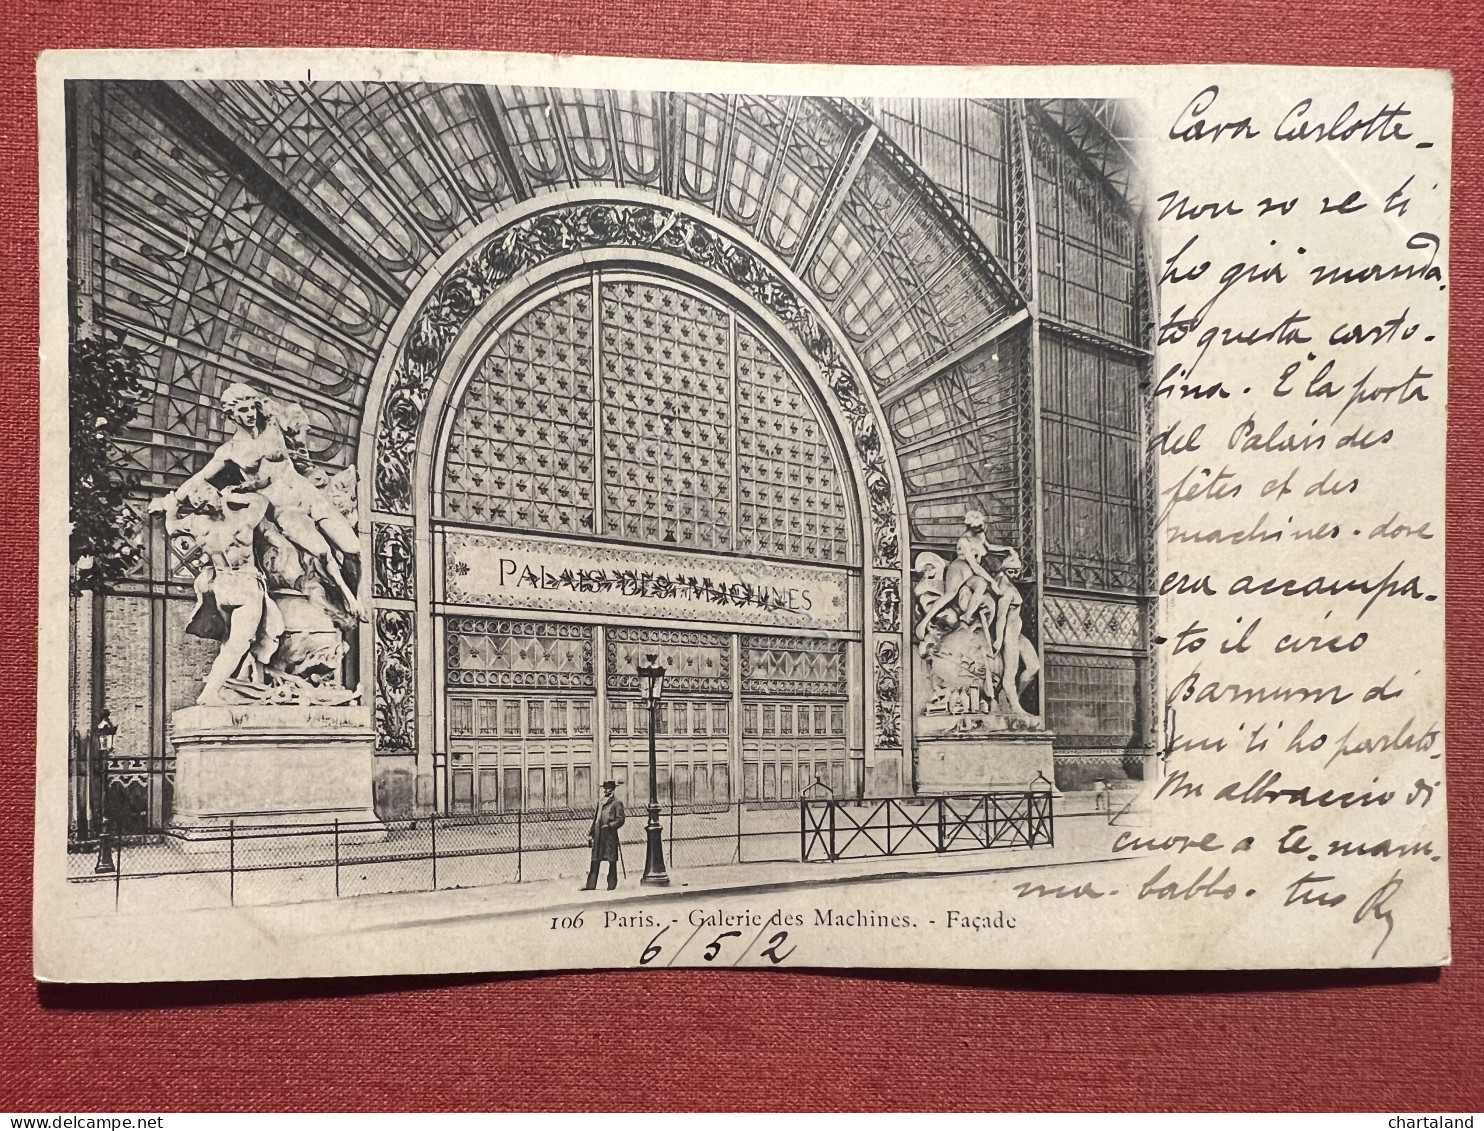 PALAIS DES MACHINES
Cara Carlotta -
non so se ti
ho già manda-
to questa carto-
lina. È la porta
del Palais des
fêtes et des
machines - dove
era accampa-
to il circo
Barnum di
cui ti ho parlato.
Un abbraccio di
cuore a te - mam-
ma - babbo. tuo
106 Paris. - Galerie des Machines. - Façade
6/5/2
© chartaland
chartaland